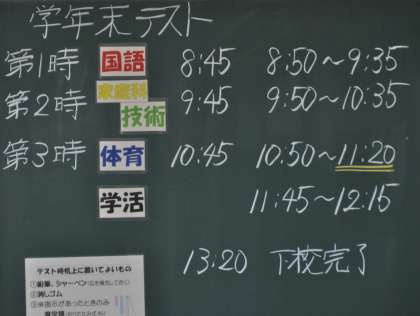 学年末テスト
第1時 国語 8:45 8:50～9:35
第2時 家庭科 技術 9:45 9:50～10:35
第3時 体育 10:45 10:50～11:20
学活 11:45～12:15
13:20 下校完了
テスト時机上に置いてよいもの
①鉛筆、シャーペン
②消しゴム
③※指示があったときのみ